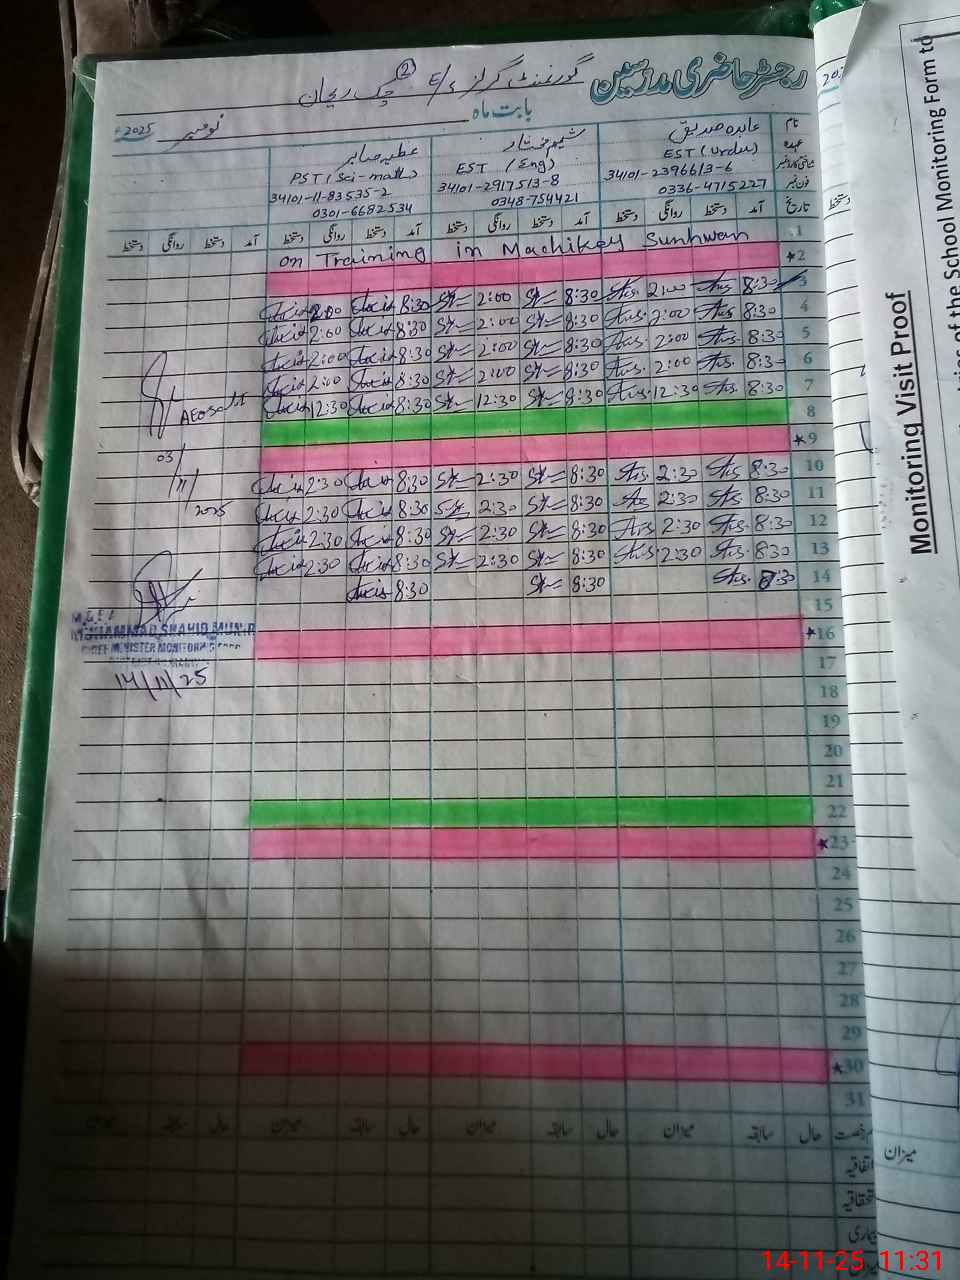 رجسٹر حاضری مدرسین گورنمنٹ گرلز E/S چک ریحان
2
بابت ماہ نومبر 2025ء
نام عابدہ صدیق شمیم مختار عطیہ صابر
عہدہ EST (Urdu) EST (Eng) PST (Sci-math)
شناختی کارڈ نمبر 34101-2396613-6 34101-2917513-8 34101-11-83535-2
فون نمبر 0336-4715227 0348-754421 0301-6682534
تاریخ آمد دستخط روانگی دستخط آمد دستخط روانگی دستخط آمد دستخط روانگی دستخط آمد دستخط روانگی دستخط
1 on Training in Machikey Sunhwan
★2
3 8:30 2:00 8:30 2:00 8:30 2:00
4 8:30 2:00 8:30 2:00 8:30 2:00
5 8:30 2:00 8:30 2:00 8:30 2:00
6 8:30 2:00 8:30 2:00 8:30 2:00
7 8:30 12:30 8:30 12:30 8:30 12:30
8
★9
10 8:30 2:30 8:30 2:30 8:30 2:30
11 8:30 2:30 8:30 2:30 8:30 2:30
12 8:30 2:30 8:30 2:30 8:30 2:30
13 8:30 2:30 8:30 2:30 8:30 2:30
14 8:30 8:30 8:30
15
★16
17
18
19
20
21
22
★23
24
25
26
27
28
29
★30
31
حال سابقہ میزان حال سابقہ میزان حال سابقہ میزان حال سابقہ میزان
اتفاقیہ
استحقاقیہ
بیماری
میزان
AEO
03/11/2025
MUHAMMAD SHAHID MUNIR
CHIEF MINISTER MONITORING FORCE
14/11/25
Monitoring Visit Proof
of the School Monitoring Form to
14-11-25 11:31